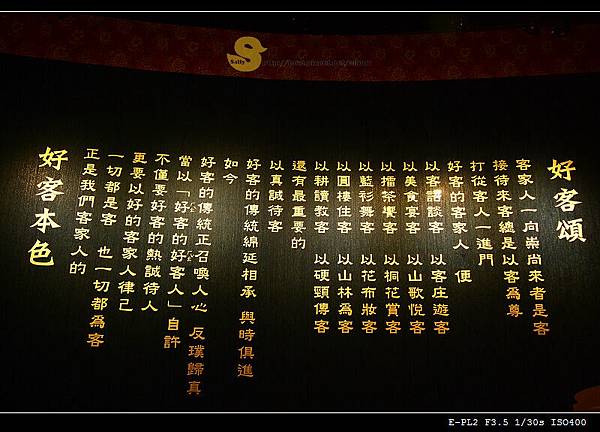 好客頌
客家人一向崇尚來者是客
接待來客總是以客為尊
打從客人一進門
好客的客家人 便
以客語談客 以客庄遊客
以美食宴客 以山歌悅客
以擂茶饗客 以桐花賞客
以藍衫舞客 以花布妝客
以圓樓住客 以山林為客
以耕讀教客 以硬頸傳客
還有最重要的
以真誠待客
好客的傳統綿延相承 與時俱進
如今
好客的傳統正召喚人心 反璞歸真
當以「好客的好客人」自許
不僅要好客的熱誠待人
更要以好的客家人律己
一切都是客 也一切都為客
正是我們客家人的
好客本色
S
Sally
E-PL2 F3.5 1/30s ISO400